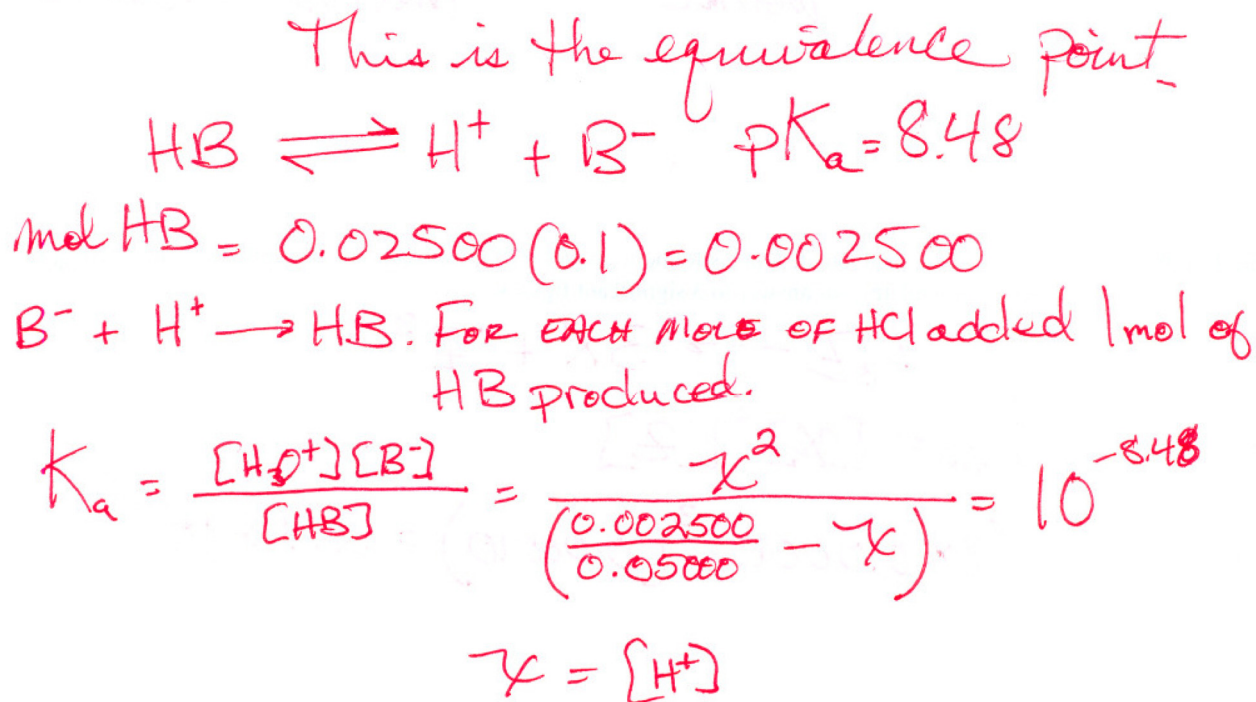 This is the equivalence point.
HB ⇌ H⁺ + B⁻ pKₐ = 8.48
mol HB = 0.02500 (0.1) = 0.002500
B⁻ + H⁺ → HB. FOR EACH MOLE OF HCl added 1 mol of
HB produced.
Kₐ = [H₃O⁺][B⁻] / [HB] = x² / (0.002500 / 0.05000 − x) = 10^−8.48
x = [H⁺]